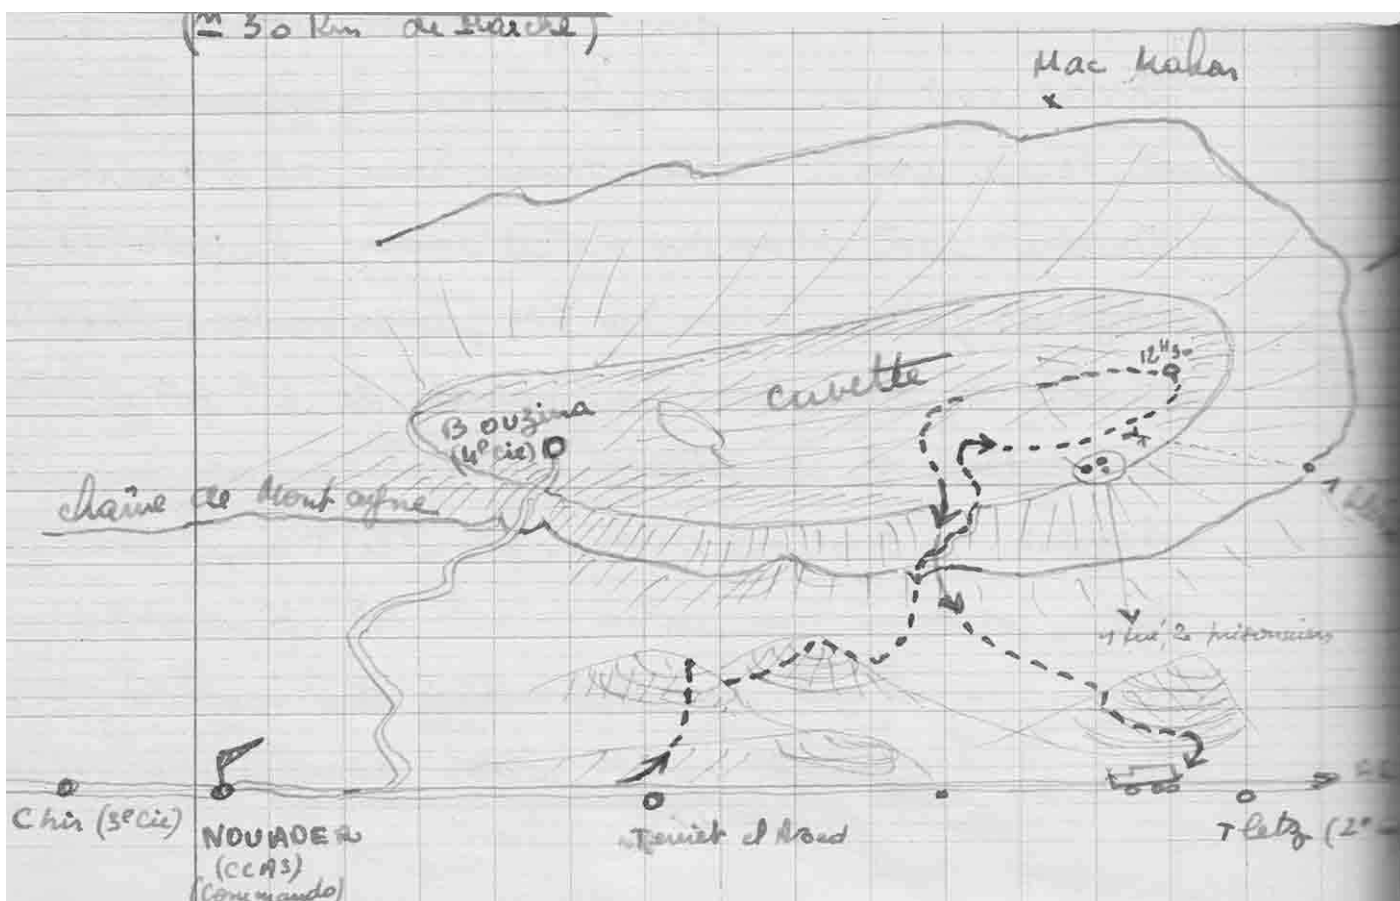 (≃ 30 Km de Marche)
Mac Mahon
12H30
cuvette
Bouzina
(4e Cie)
chaîne de Montagne
1
1 tué, 2 prisonniers
Chir (3e Cie)
NOUADER
(CCAS)
(Commando)
Teniet el Abed
T letz (2e